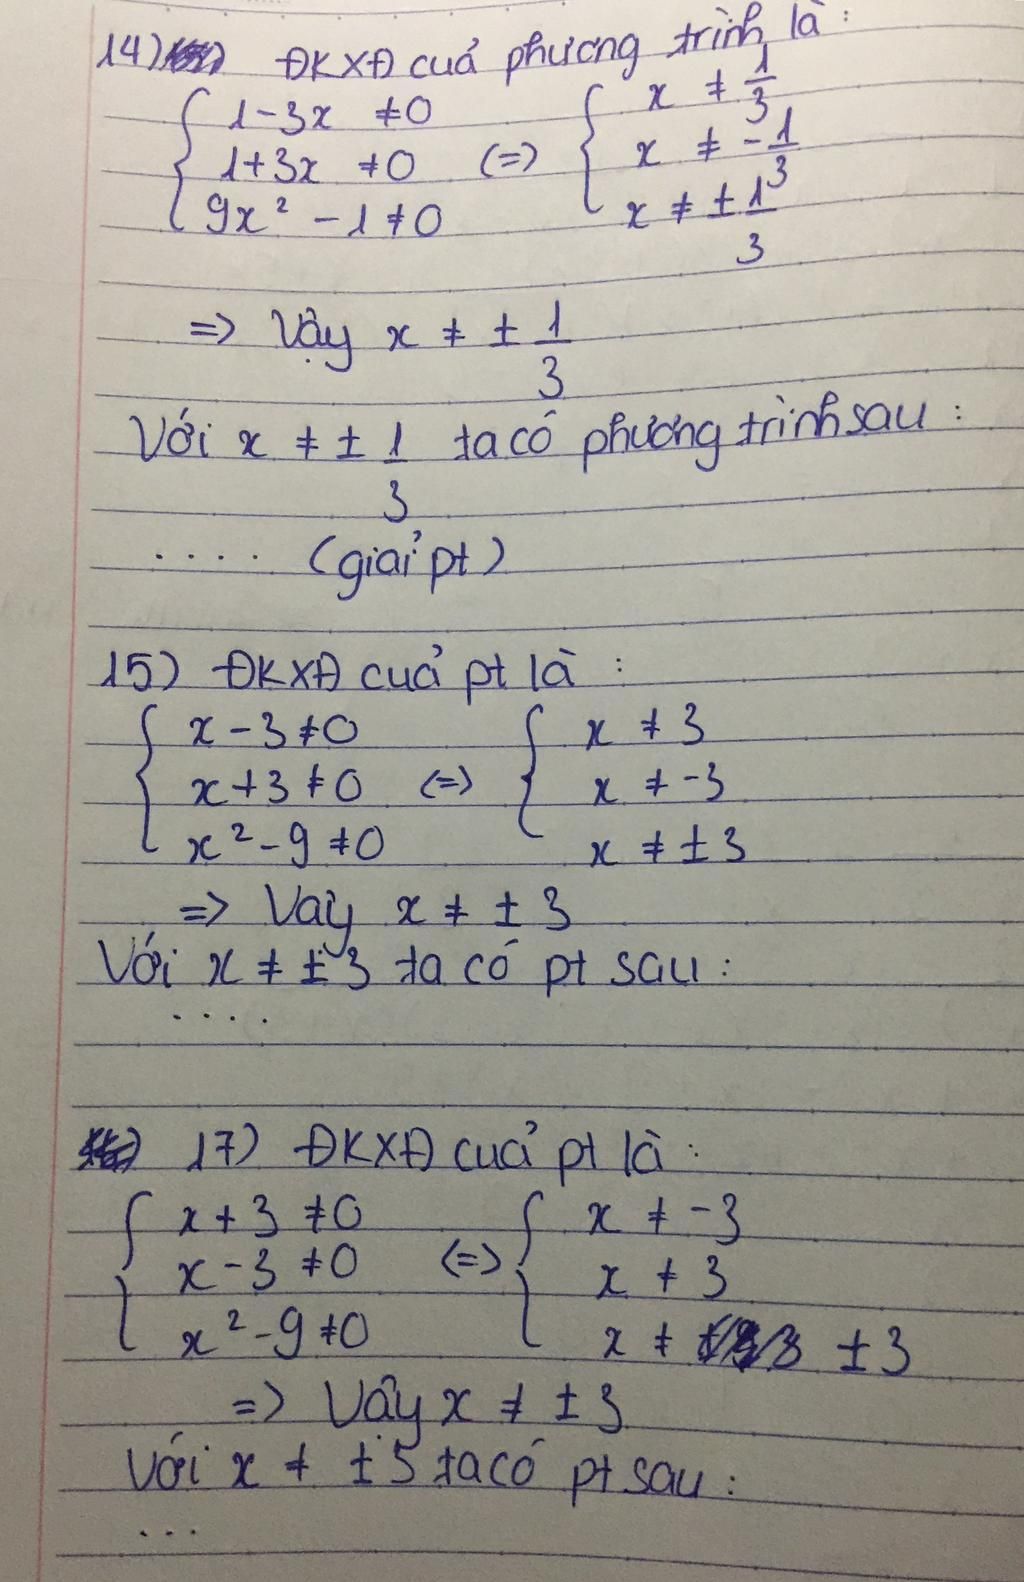 14) ĐKXĐ của phương trình là :
{ 1-3x ≠0
1+3x ≠0
9x² -1≠0 (=) { x ≠ 1/3
x ≠ -1/3
x ≠ ±1/3
=> Vậy x ≠ ± 1/3
Với x ≠ ± 1/3 ta có phương trình sau :
.... (giải pt)
15) ĐKXĐ của pt là :
{ x-3≠0
x+3≠0
x²-9≠0 (=) { x ≠ 3
x ≠ -3
x ≠ ±3
=> Vậy x ≠ ± 3
Với x ≠ ± 3 ta có pt sau :
....
17) ĐKXĐ của pt là :
{ x+3 ≠0
x-3 ≠0
x²-9≠0 (=) { x ≠ -3
x ≠ 3
x ≠ ±3
=> Vậy x ≠ ±3
Với x ≠ ±5 ta có pt sau :
...